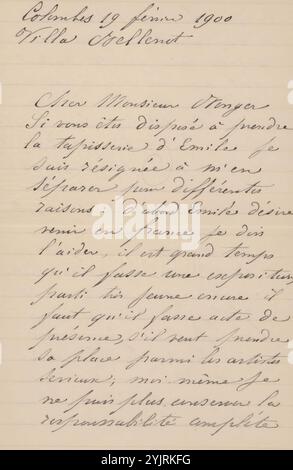 Colombes 19 février 1900
Villa Bellenot
Cher Monsieur Monger
Si vous êtes disposé à prendre
la tapisserie d'Emile je
suis résignée à m'en
séparer pour différentes
raisons d'abord Emile désire
venir en france je dois
l'aider, il est grand temps
qu'il fasse une exposition
parti très jeune encore il
faut qu'il fasse acte de
présence, s'il veut prendre
sa place parmi les artistes
serieux; moi même je
ne puis plus conserver la
responsabilité complète
alamy
Image ID: 2YJRKFG
www.alamy.com